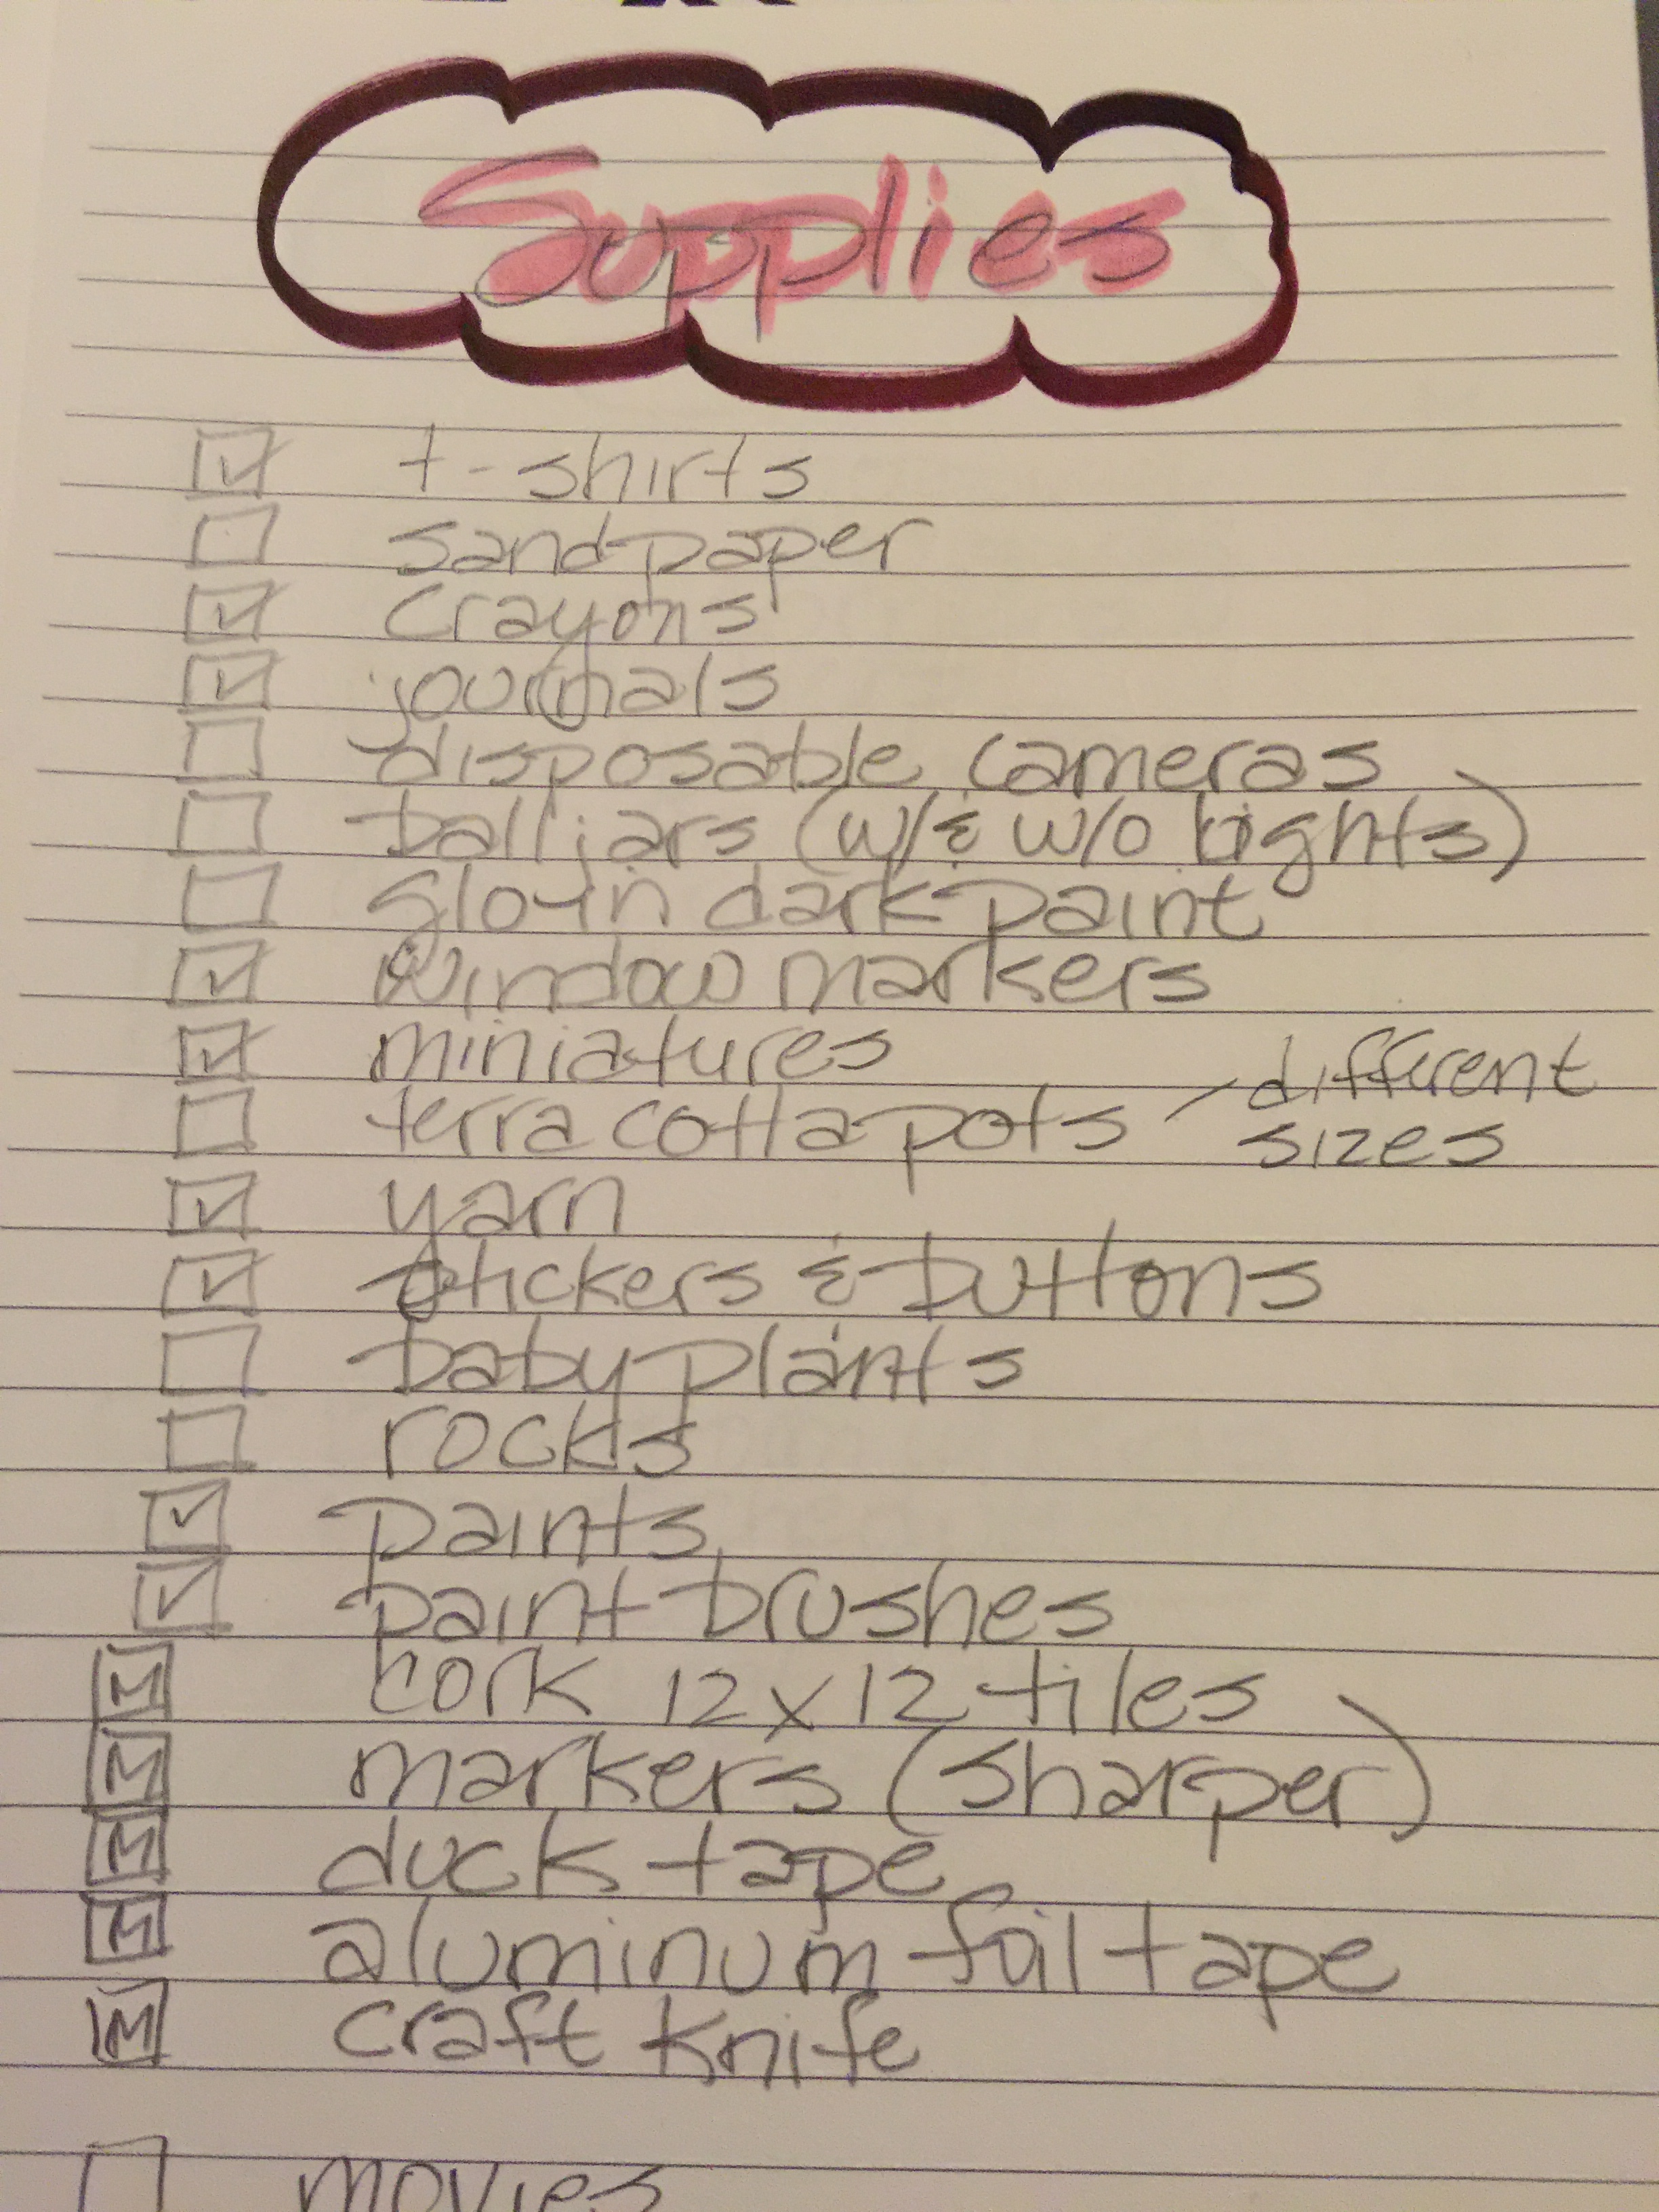 Supplies
☑ t-shirts
☐ sandpaper
☑ crayons
☑ journals
☐ disposable cameras
☐ ball jars (w/ & w/o lights)
☐ glo-in dark paint
☑ window markers
☑ miniatures
☐ terra cotta pots - different
sizes
☑ yarn
☑ stickers & buttons
☐ baby plants
☐ rocks
☑ paints
☑ paint brushes
M cork 12x12 tiles
M markers (sharper)
M duck tape
M aluminum foil tape
M craft knife
☐ movies